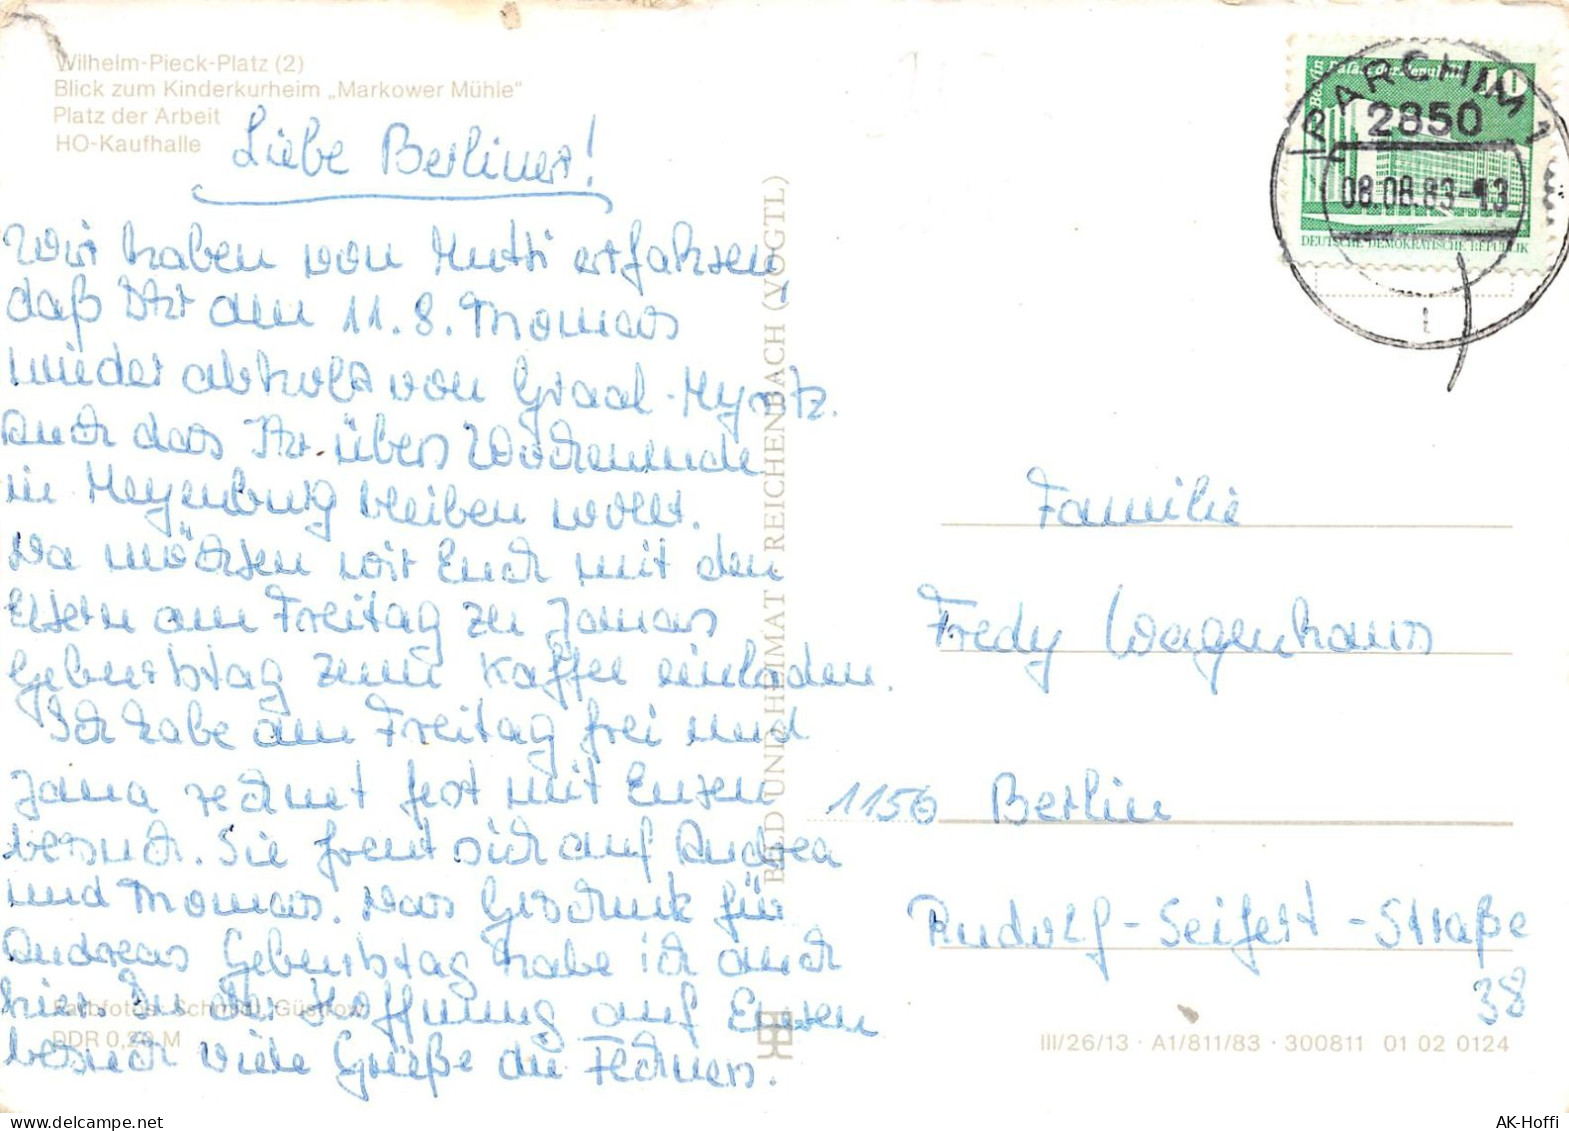 Wilhelm-Pieck-Platz (2)
Blick zum Kinderkurheim „Markower Mühle"
Platz der Arbeit
HO-Kaufhalle
Liebe Berliner!
Wir haben von Mutti erfahren,
daß Ihr am 11.8. Thomas
wieder abholt von Graal-Myritz.
Auch das Ihr übers Wochenende
in Meyenburg bleiben wollt.
Da möchten wir Euch mit den
Eltern am Freitag zu Janas
Geburtstag zum Kaffee einladen.
Ich habe am Freitag frei und
Jana rechnet fest mit Euren
besuch. Sie freut sich auf Andrea
und Thomas. Das Geschenk für
Andreas Geburtstag habe ich auch
hier In der Hoffnung auf Euren
besuch viele Grüße die Fechners.
Farbfotos: Schmidt, Güstrow
DDR 0,20 M
BILD UND HEIMAT REICHENBACH (VOGTL)
Berlin Palast der Republik 10
DEUTSCHE DEMOKRATISCHE REPUBLIK
PARCHIM 1
2850
08.08.83-13
Familie
Fredy Wagenhaus
1156 Berlin
Rudolf-Seifert-Straße
38
III/26/13 · A1/811/83 · 300811 01 02 0124
AK-Hoffi